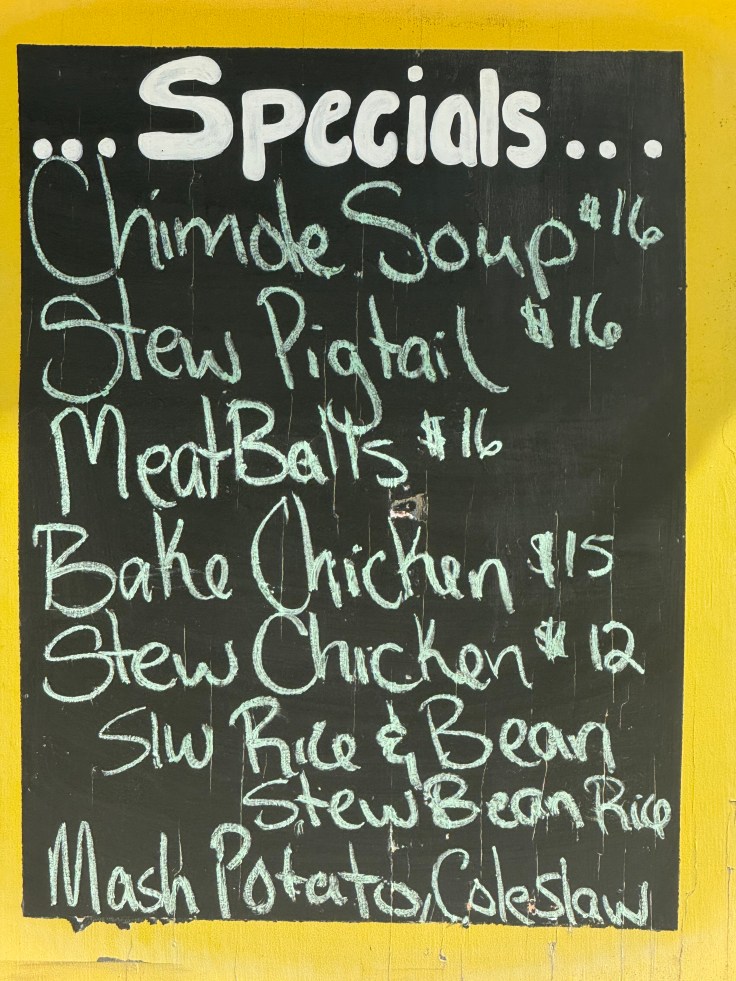 ...Specials...
Chimole Soup $16
Stew Pigtail $16
MeatBalls $16
Bake Chicken $15
Stew Chicken $12
S/w Rice & Bean
Stew Bean Rice
Mash Potato, Coleslaw